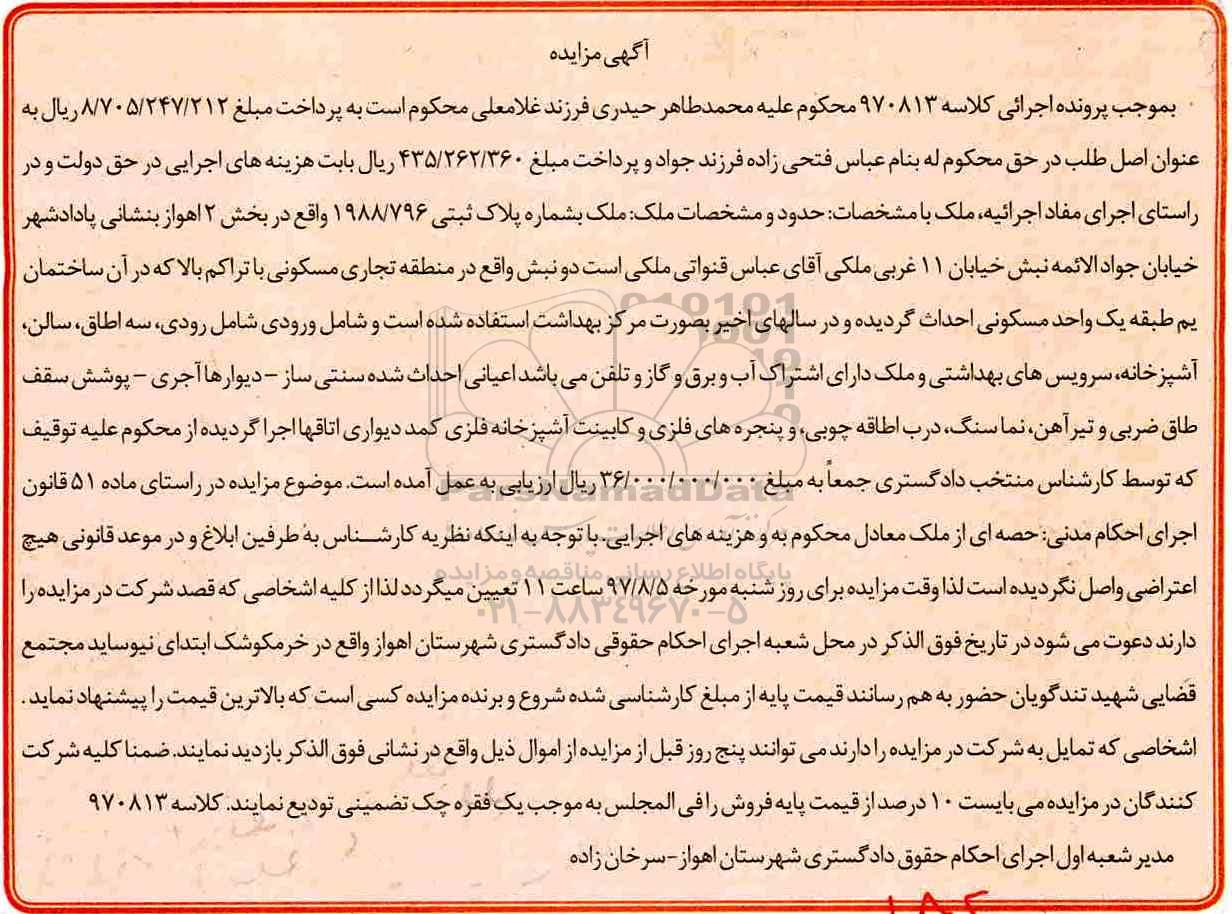 آگهی مزایده
بموجب پرونده اجرائی کلاسه ۹۷۰۸۱۳ محکوم علیه محمدطاهر حیدری فرزند غلامعلی محکوم است به پرداخت مبلغ ۸/۷۰۵/۲۴۷/۲۱۲ ریال به
عنوان اصل طلب در حق محکوم له بنام عباس فتحی زاده فرزند جواد و پرداخت مبلغ ۴۳۵/۲۶۲/۳۶۰ ریال بابت هزینه های اجرایی در حق دولت و در
راستای اجرای مفاد اجرائیه، ملک با مشخصات: حدود و مشخصات ملک: ملک بشماره پلاک ثبتی ۱۹۸۸/۷۹۶ واقع در بخش ۲ اهواز بنشانی پادادشهر
خیابان جواد الائمه نبش خیابان ۱۱ غربی ملکی آقای عباس قنواتی ملکی است دو نبش واقع در منطقه تجاری مسکونی با تراکم بالا که در آن ساختمان
یم طبقه یک واحد مسکونی احداث گردیده و در سالهای اخیر بصورت مرکز بهداشت استفاده شده است و شامل ورودی شامل رودی، سه اطاق، سالن،
آشپزخانه، سرویس های بهداشتی و ملک دارای اشتراک آب و برق و گاز و تلفن می باشد اعیانی احداث شده سنتی ساز – دیوارها آجری – پوشش سقف
طاق ضربی و تیرآهن، نما سنگ، درب اطاقه چوبی، و پنجره های فلزی و کابینت آشپزخانه فلزی کمد دیواری اتاقها اجرا گردیده از محکوم علیه توقیف
که توسط کارشناس منتخب دادگستری جمعاً به مبلغ ۳۶/۰۰۰/۰۰۰/۰۰۰ ریال ارزیابی به عمل آمده است. موضوع مزایده در راستای ماده ۵۱ قانون
اجرای احکام مدنی: حصه ای از ملک معادل محکوم به و هزینه های اجرایی. با توجه به اینکه نظریه کارشناس به طرفین ابلاغ و در موعد قانونی هیچ
اعتراضی واصل نگردیده است لذا وقت مزایده برای روز شنبه مورخه ۹۷/۸/۵ ساعت ۱۱ تعیین میگردد لذا از کلیه اشخاصی که قصد شرکت در مزایده را
دارند دعوت می شود در تاریخ فوق الذکر در محل شعبه اجرای احکام حقوقی دادگستری شهرستان اهواز واقع در خرمکوشک ابتدای نیوساید مجتمع
قضایی شهید تندگویان حضور به هم رسانند قیمت پایه از مبلغ کارشناسی شده شروع و برنده مزایده کسی است که بالاترین قیمت را پیشنهاد نماید.
اشخاصی که تمایل به شرکت در مزایده را دارند می توانند پنج روز قبل از مزایده از اموال ذیل واقع در نشانی فوق الذکر بازدید نمایند. ضمنا کلیه شرکت
کنندگان در مزایده می بایست ۱۰ درصد از قیمت پایه فروش را فی المجلس به موجب یک فقره چک تضمینی تودیع نمایند. کلاسه ۹۷۰۸۱۳
مدیر شعبه اول اجرای احکام حقوق دادگستری شهرستان اهواز-سرخان زاده
ParsNamadData
پایگاه اطلاع رسانی مناقصه و مزایده
۰۲۱-۸۸۳۴۹۶۷۰-۵